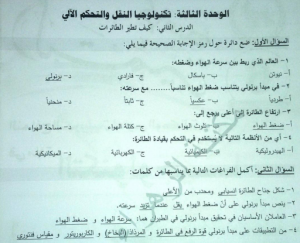 الوحدة الثالثة: تكنولوجيا النقل والتحكم الآلي
الدرس الثاني: كيف تطير الطائرات
السؤال الأول: ضع دائرة حول رمز الإجابة الصحيحة فيما يلي:
1- العالم الذي ربط بين سرعة الهواء وضغطه:
أ- نيوتن ب- باسكال ج- فارادي د- برنولي
2- في مبدأ برنولي يتناسب ضغط الهواء تناسباً مع سرعته:
أ- طردياً ب- عكسياً ج- ثابتاً د- منحنياً
3- ارتفاع الطائرة إلى أعلى يرجع إلى:
أ- ضغط الهواء ب- تلوث الهواء ج- كتلة الهواء د- مساحة الهواء
4- أي من الأنظمة التالية لا يستخدم في التحكم بقيادة الطائرة:
أ- الهيدروليكية ج- الكهربائية د- الميكانيكية
السؤال الثاني: أكمل الفراغات التالية بما يناسبها من كلمات:
1- شكل جناح الطائرة انسيابي ومحدب من الأعلى
2- ينص مبدأ برنولي على أن ضغط الهواء يقل عندما تزيد سرعته
3- العاملان الأساسيان في تحقيق مبدأ برنولي في الطيران هما سرعة الهواء و ضغط الهواء
4- من التطبيقات على مبدأ برنولي قوة الرفع في الطائرة و المرذاذ (البخاخ) و الكاربوريتور و مقياس فنتوري